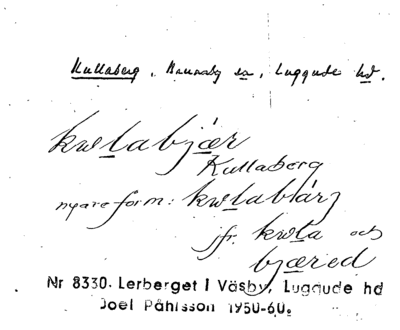 Kullaberg, Brunnby sn, Luggude hd.
kwlabjær
Kullaberg
nyare form: kwlabjärj
jfr. kwla och
bjæred
Nr 8330. Lerberget i Väsby, Luggude hd
Joel Påhlsson 1950-60.